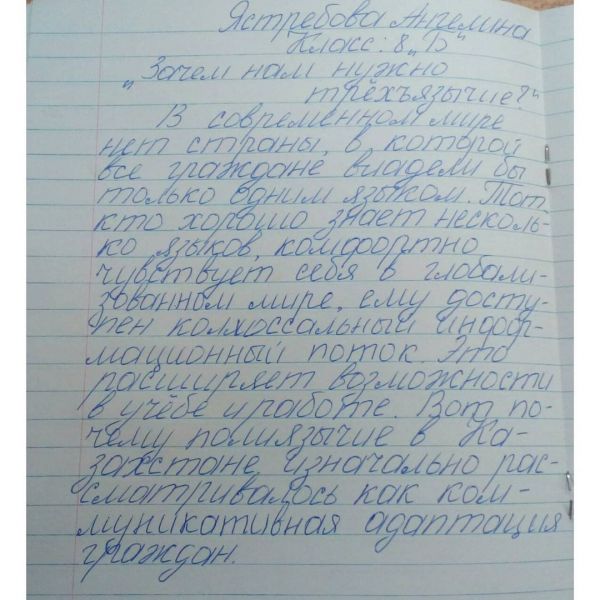 Ястребова Ангелина
Класс: 8 „Б"
„Зачем нам нужно
трёхъязычие?"
В современном мире
нет страны, в которой
все граждане владели бы
только одним языком. Тот,
кто хорошо знает несколь-
ко языков, комфортно
чувствует себя в глобали-
зованном мире, ему досту-
пен колхоссальный инфор-
мационный поток. Это
расширяет возможности
в учёбе и работе. Вот по-
чему полиязычие в Ка-
захстане изначально рас-
сматривалось как ком-
муникативная адаптация
граждан.